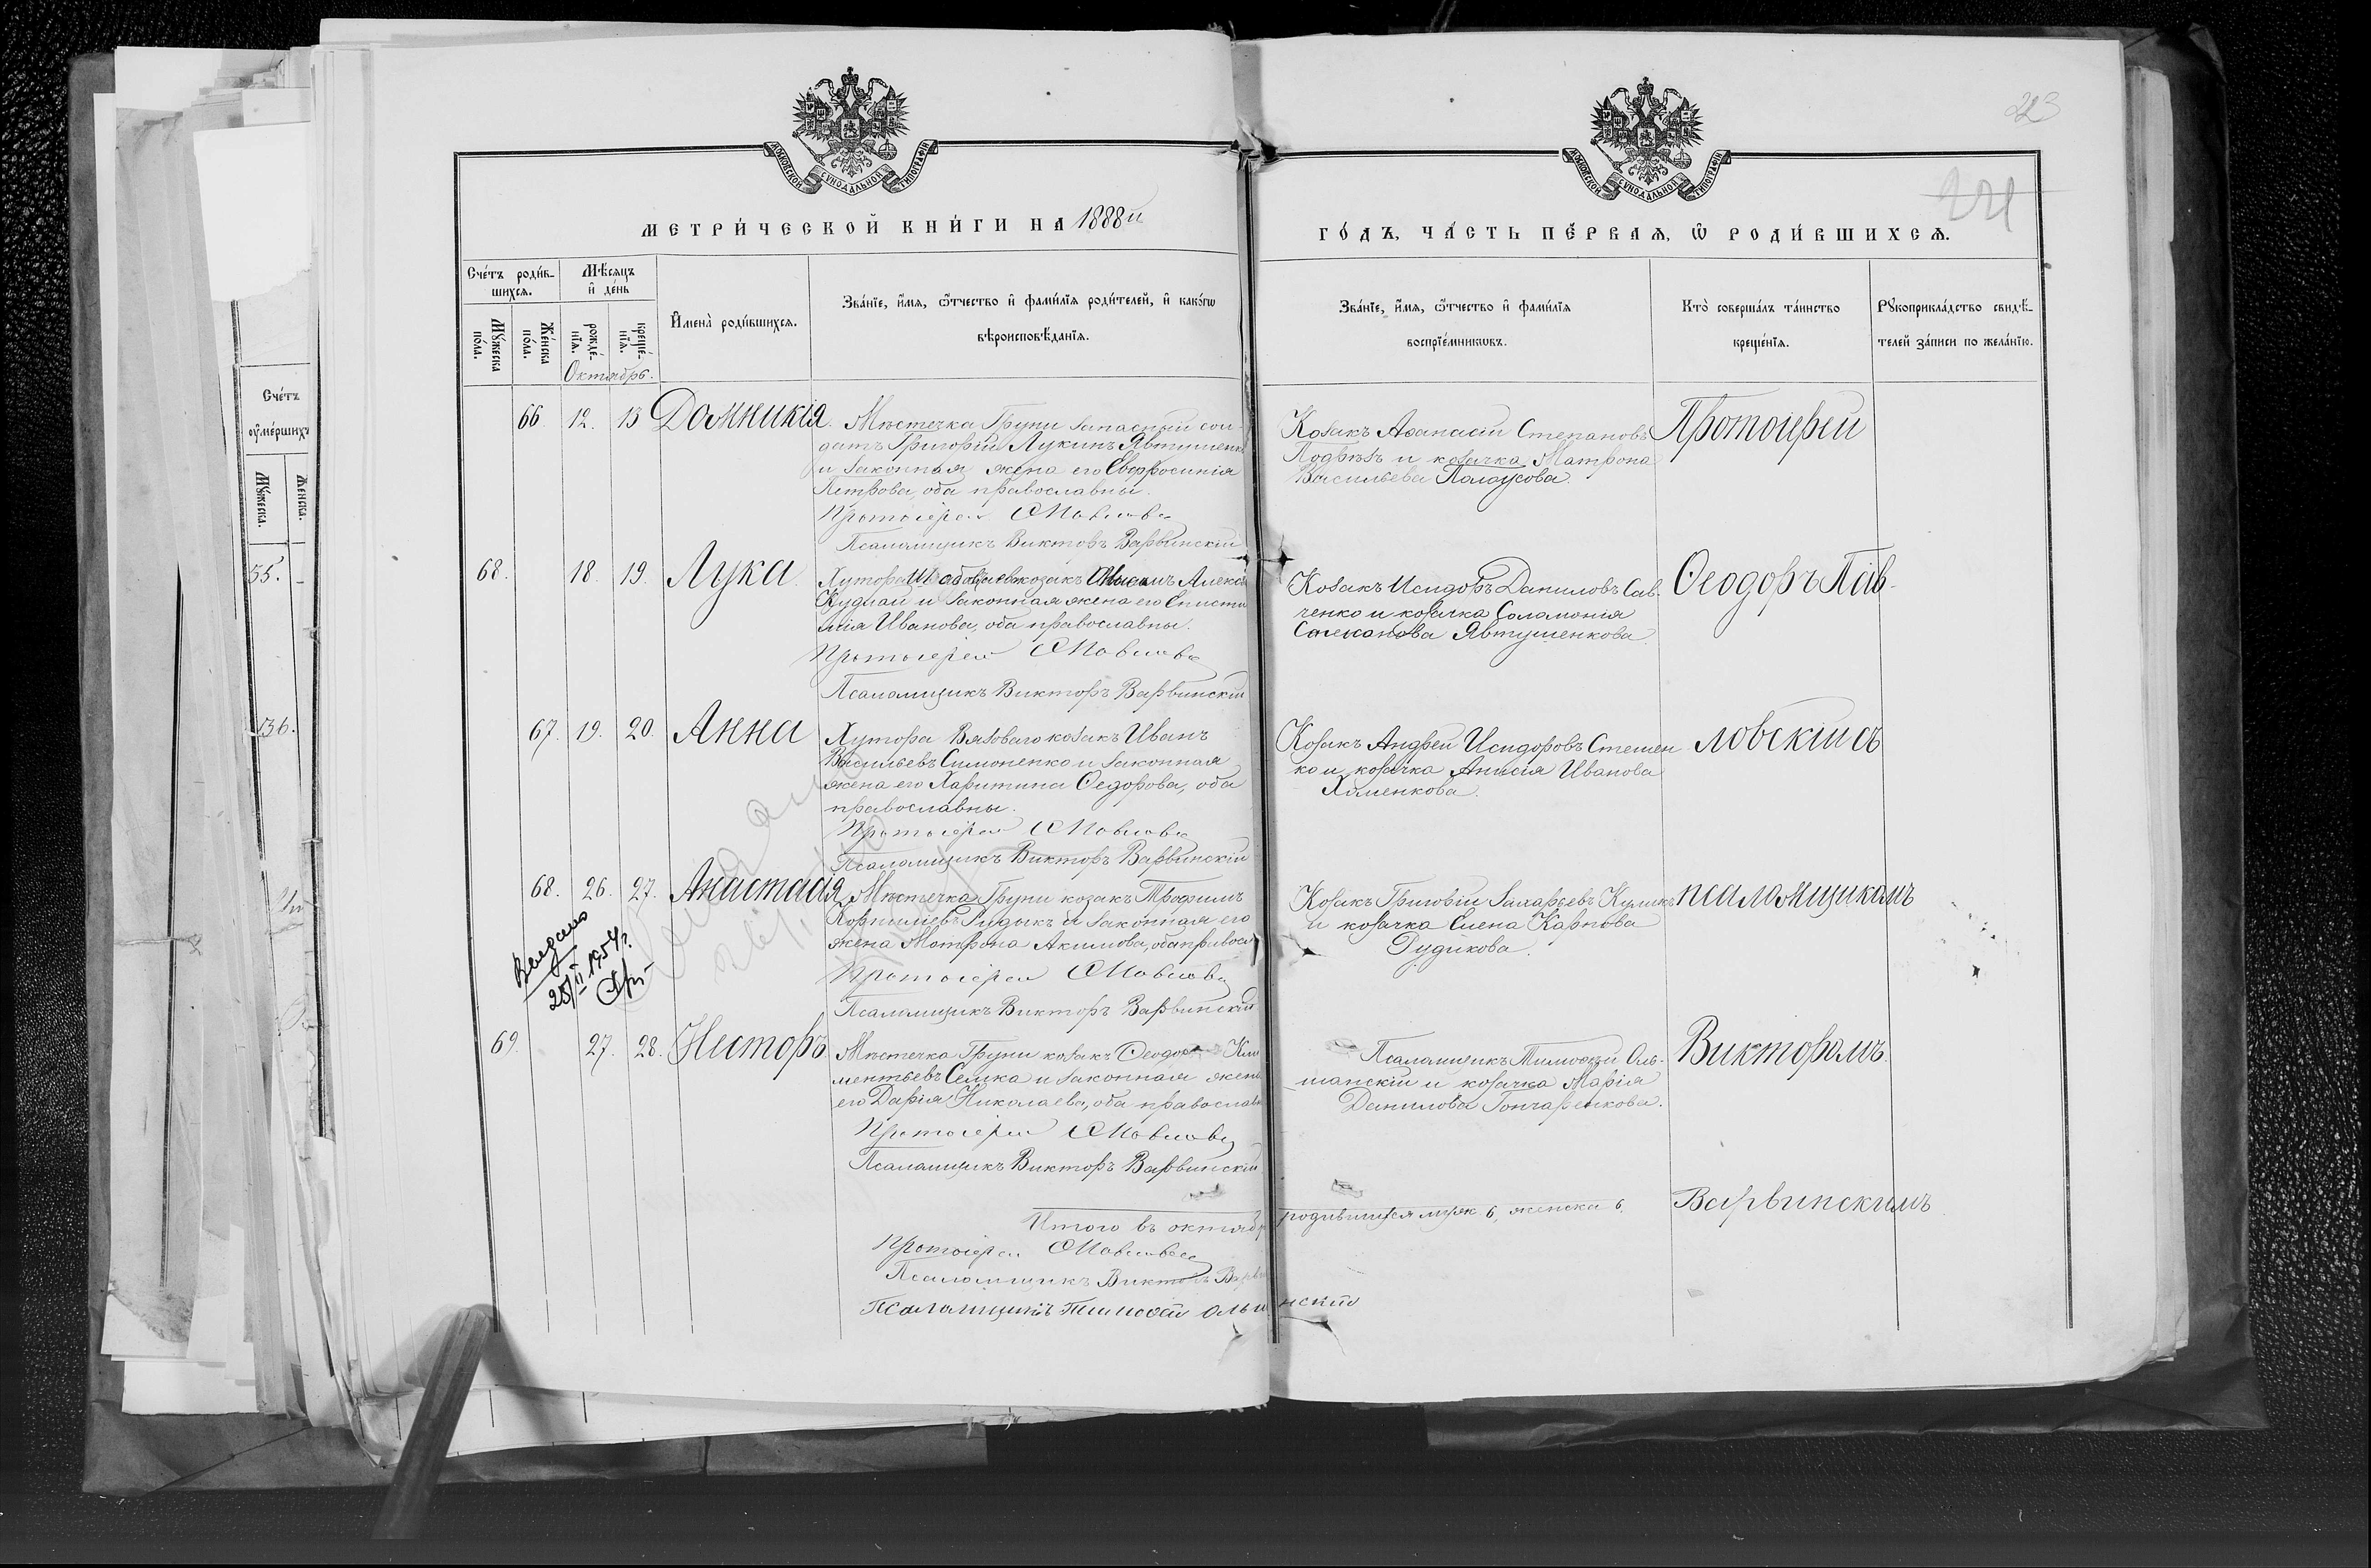 213
221
МОСКОВСКОЙ СУНОДАЛЬНОЙ ТИПОГРАФІИ
МОСКОВСКОЙ СУНОДАЛЬНОЙ ТИПОГРАФІИ
МЕТРИ́ЧЕСКОЙ КНИ́ГИ НА 1888й
ГО́ДЪ, ЧА́СТЬ ПЕ́РВАЯ, Ѡ РОДИ́ВШИХСЯ.
Сче́тъ роди́в-
шихся.
Мѣ́сяцъ
и де́нь
Мꙋ́жеска
по́ла.
Же́нска
по́ла.
рожде́-
нїя.
креще́-
нїя.
Имена̀ роди́вшихся.
Зва́нїе, и́мя, ѻ҆́тчество и фами́лїя роди́телей, и како́гѡ
вѣроисповѣ́данїя.
Зва́нїе, и́мя, ѻ҆́тчество и фами́лїя
воспрїе́мникѡвъ.
Кто̀ соверша́лъ та́инство
креще́нїя.
Рꙋкоприкла́дство свидѣ́-
телей за́писи по жела́нїю.
Сче́тъ
ᲂу҆ме́ршихъ
Мꙋ́жеска.
Же́нска.
55.
136.
Октябрь.
66 12. 13 Домникія.
Мѣстечка Груни запасный сол-
датъ Григорій Лукинъ Явтушенко
и законная жена его Евфросинія
Петрова, оба православны.
Протоіерей Ѳ Павловскій
Псаломщикъ Викторъ Варвинскій
Козакъ Аѳанасій Степановъ
Подрѣзъ и козачка Матрона
Васильева
Протоіерей
68. 18. 19. Лука
Хутора козакъ
Кудлай и законная жена его Еписти-
мія Иванова, оба православны.
Протоіерей Ѳ Павловскій
Псаломщикъ Викторъ Варвинскій
Козакъ Исидоръ Даниловъ Сав-
ченко и козачка Саламонія
Степанова Явтушенкова
Ѳеодоръ Пав-
67. 19. 20. Анна
Хутора Вязоваго козакъ Иванъ
Васильевъ Симоненко и законная
жена его Харитина Ѳедорова, оба
православны.
Протоіерей Ѳ Павловскій
Псаломщикъ Викторъ Варвинскій
Козакъ Андрей Исидоровъ Стешен
ко и козачка Анисія Иванова
Хоменкова.
ловскій съ
68. 26. 27. Анастасія
Мѣстечка Груни козакъ Трофимъ
Корнилиевъ Рудыкъ и законная его
жена Матрона Акимова, оба правосл
Протоіерей Ѳ Павловскій
Псаломщикъ Викторъ Варвинскій
Козакъ Григорій Захарьевъ Куликъ
и козачка Елена Карпова
Рудикова.
псаломщикомъ
Выдано
28/II 1954 г.
69. 27. 28. Несторъ
Мѣстечка Груни козакъ Ѳеодоръ Кли
ментьевъ Семка и законная жена
его Дарія Николаева, оба православ
Протоіерей Ѳ Павловскій
Псаломщикъ Викторъ Варвинскій
Псаломщикъ Тимоѳей Оль-
шанскій и козачка Марія
Данилова Гончаренкова.
Викторомъ
Варвинскимъ
Итого въ октябр родившихся муж. 6, женска 6.
Протоіерей Ѳ Павловскій
Псаломщикъ Викторъ Варви
Псаломщикъ Тимоѳей Ольшанскій